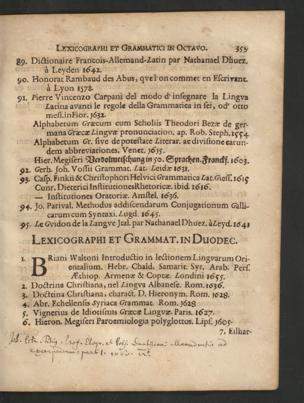 LEXICOGRAPHI ET GRAMMATICI IN OCTAVO. 359
89. Dictionaire Francois-Allemand-Latin par Nathanael Dhuez.
à Leyden 1642.
90. Honorat Rambaud des Abus, qvel'on commet en Escrivant.
à Lyon 1578.
91. Pierre Vincenzo Carpani del modo d'insegnare la Lingva
Latina avanti le regole della Grammatica in sei, od' otto
mesi. in Fior. 1632.
Alphabetum Græcum cum Scholiis Theodori Bezæ de ger-
mana Græcæ Lingvæ pronunciation. ap. Rob. Steph. 1554.
Alphabetum Gr. sive de potestate Literar. ac divisione earun-
dem abbreviationes. Venet. 1635.
Hier. Megiseri Verdolmetschung in 50. Sprachen. Franckf. 1603.
92. Gerh. Joh. Vossii Grammat. Lat. Leidæ 1631.
93. Casp. Finkii & Christophori Helvici Grammatica Lat. Giess. 1615
Cunr. Dieterici Institutiones Rhetoricæ. ibid. 1616.
— Institutiones Oratoriæ. Amstel. 1636.
94. Jo. Parival. Methodus addiscendarum Conjugationum Galli-
carum cum Syntaxi. Lugd. 1645.
95. Le Gvidon de la Langve Ital. par Nathanael Dhuez. à Leyd. 1641
LEXICOGRAPHI ET GRAMMAT. IN DUODEC.
1. BRiani Waltoni Introductio in lectionem Lingvarum Ori-
entalium. Hebr. Chald. Samarit. Syr. Arab. Pers.
Æthiop. Armenæ & Coptæ. Londini 1655.
2. Doctrina Christiana, nel Lingva Albanese. Rom. 1636.
3. Doctrina Christiana. charact. D. Hieronym. Rom. 1628.
4. Abr. Echellensis Syriaca Grammat. Rom. 1628
5. Vignerius de Idiotismis Græcæ Lingvæ. Paris. 1627.
6. Hieron. Megiseri Paroemiologia polyglottos. Lips. 1605.
7. Eilhar-